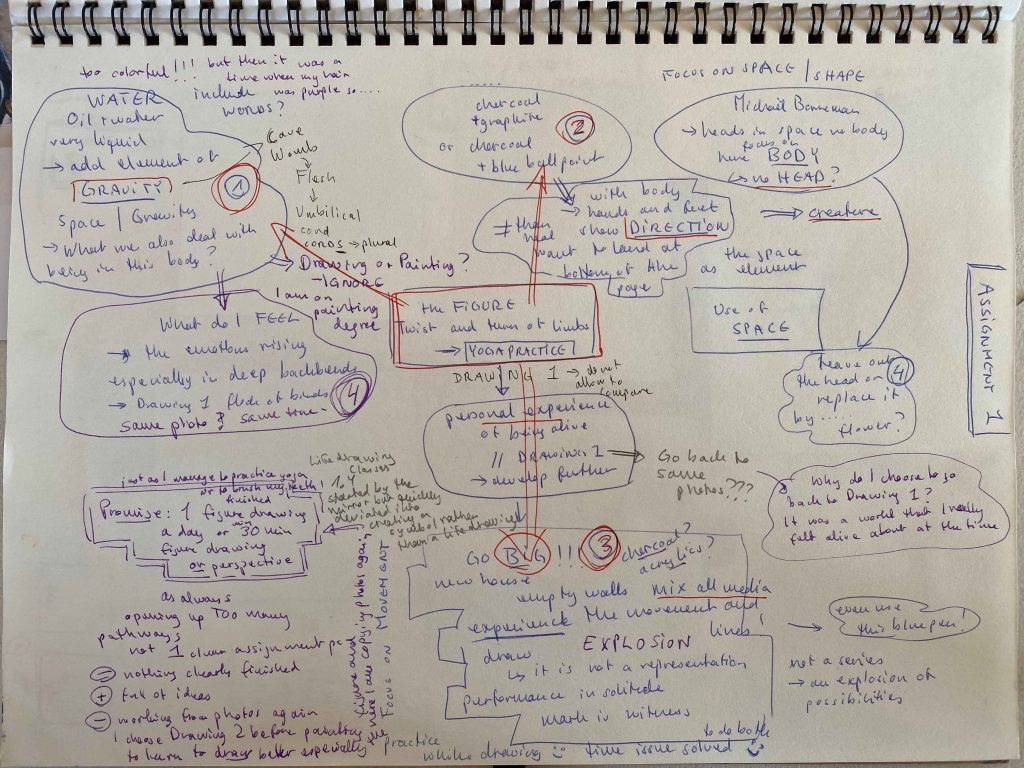 too colorful!!! but then it was a
time when my hair
was purple so....
WATER
Oil + water
very liquid
→ add element of
GRAVITY
Space / Gravity
→ What we also deal with
being in this body?
1
include
words?
Cave
Womb
Flesh
Umbilical
cord
cords → plural
→ Drawing or Painting?
→ IGNORE
I am on
painting
degree
What do I FEEL
→ the emotions rising
especially in deep backbends
→ Drawing 1 flock of birds
same photo? same time.
4
charcoal
+ graphite
or charcoal
+ blue ballpoint
2
with body
→ hands and feet
show DIRECTION
≠ than
head
want to land at
bottom of the
page
FOCUS ON SPACE / SHAPE
→ heads in space no body
focus on
here BODY
↳ no HEAD?
⇒ creature
the space
as element
Use of
SPACE
Leave out
the head or
replace it
by .....
flower?
4
ASSIGNMENT 1
the FIGURE
Twist and turn of limbs
→ YOGA PRACTICE
DRAWING 1 → do not
allow to
compare
personal experience
of being alive
// DRAWING 1
→ develop further
Go back to
same
photos???
Why do I choose to go
back to Drawing 1?
It was a world that I really
felt alive about at the time
just as I manage to practice yoga
or to brush my teeth!
finished
Promise: 1 figure drawing
a day or 30 min
figure drawing
or perspective
Life drawing
classes
started by the
mirror but quickly
deviated into
creating a
symbol rather
than a life drawing
GO BIG!!!
3
charcoal?
acrylics?
new house
empty walls mix all media
experience the movement and
lines!
draw EXPLOSION
↳ it is not a representation
performance in solitude
mark is witness
→ even use
this blue pen!
not a series
→ an explosion of
possibilities
as always
opening up TOO many
pathways
not 1 clear assignment
- nothing clearly finished
+ full of ideas
- working from photos again
I choose Drawing 2 before painting
to learn to draw better especially
figure and
here I am copying photos again
FOCUS ON MOVEMENT
practice
while drawing
time issue solved
to do both